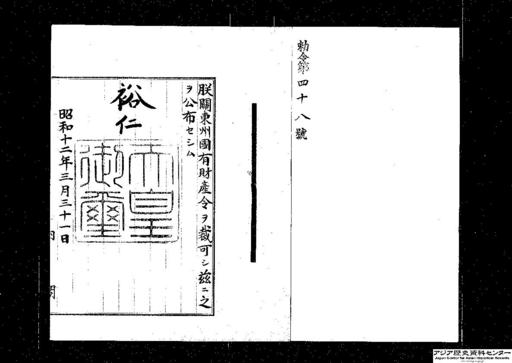 勅令第四十八號
朕關東州國有財產令ヲ裁可シ茲ニ之
ヲ公布セシム
裕仁
天皇
御璽
昭和十二年三月三十一日
アジア歴史資料センター
Japan Center for Asian Historical Records